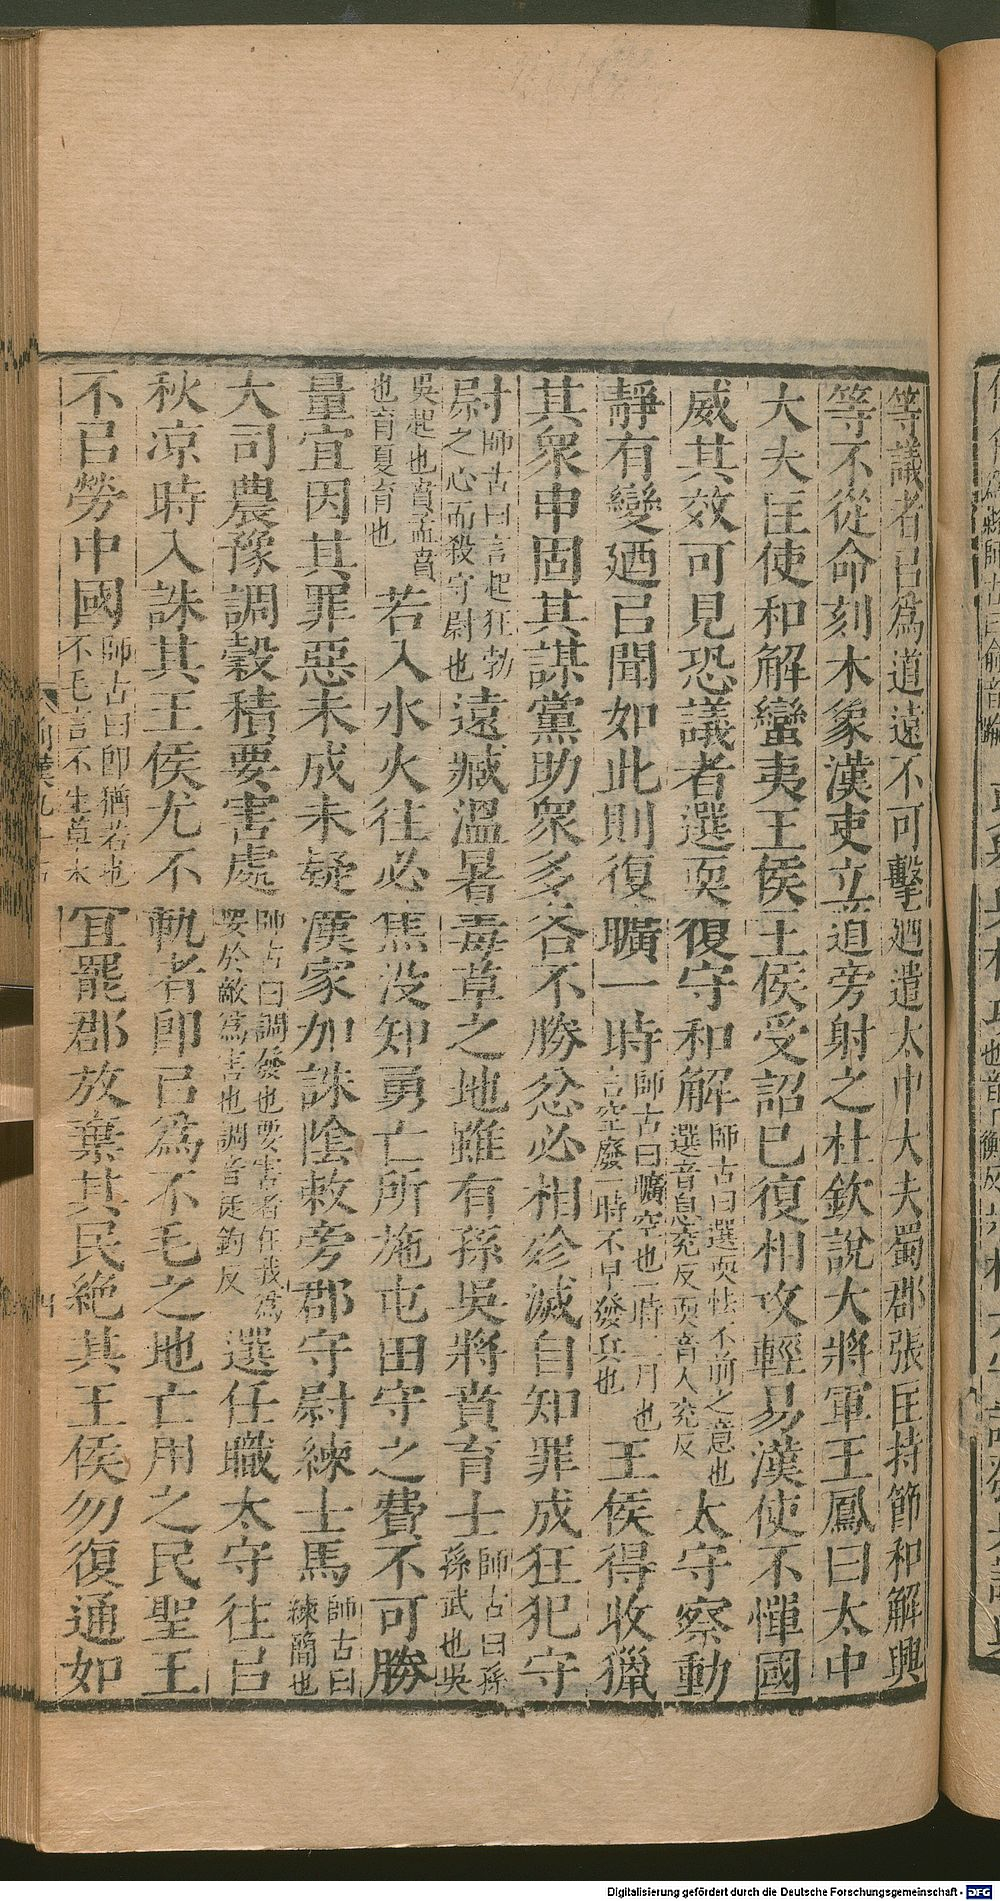 等議者㠯爲道遠不可擊廼遣太中大夫蜀郡張匡持節和解興
等不從命刻木象漢吏立道旁射之杜欽說大將軍王鳳曰太中
大夫匡使和解蠻夷王侯王侯受詔已復相攻輕易漢使不憚國
威其效可見恐議者選耎復守和解師古曰選耎怯不前之意也選音息兖反耎音人兖反太守察動
靜有變廼㠯聞如此則復曠一時師古曰曠空也一時三月也言空廢一時不早發兵也王侯得收獵
其衆申固其謀黨助衆多各不勝忿必相殄滅自知罪成狂犯守
尉師古曰言起狂勃之心而殺守尉也遠臧溫暑毒草之地雖有孫吳將賁育士師古曰孫孫武也吳
吳起也賁孟賁也育夏育也若入水火往必焦没知勇亡所施屯田守之費不可勝
量宜因其罪惡未成未疑漢家加誅陰敕旁郡守尉練士馬師古曰練簡也
大司農豫調穀積要害處師古曰調發也要害者在我爲要於敵爲害也調音徒釣反選任職太守往㠯
秋凉時入誅其王侯尤不軌者卽㠯爲不毛之地亡用之民聖王
不㠯勞中國師古曰卽猶若也不毛言不生草木宜罷郡放棄其民絕其王侯勿復通如
Digitalisierung gefördert durch die Deutsche Forschungsgemeinschaft - DFG